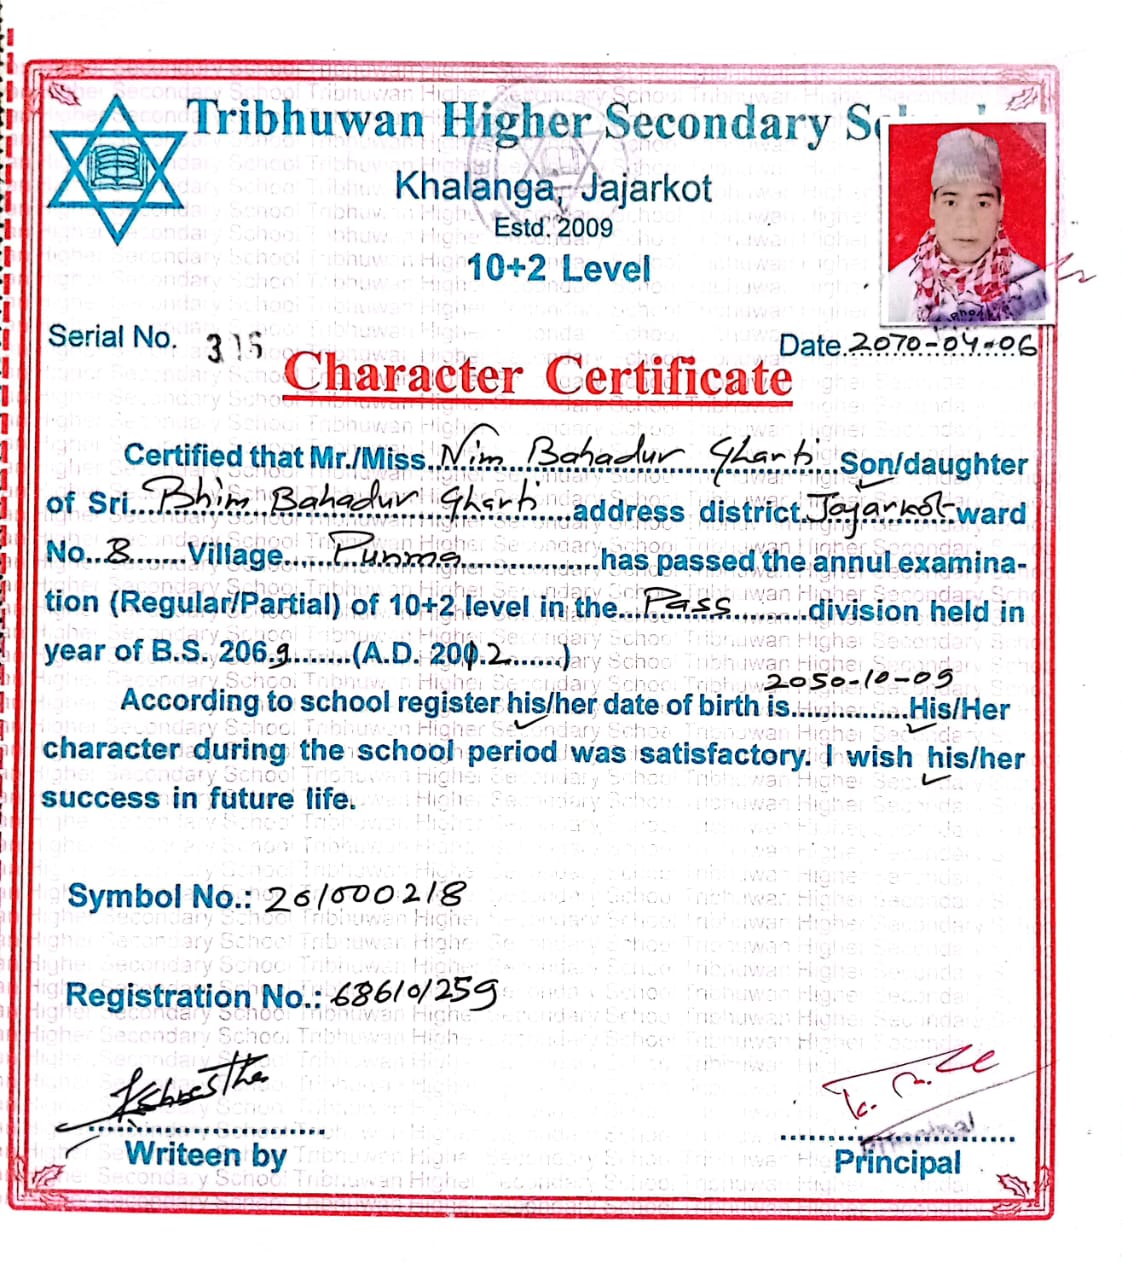 Tribhuwan Higher Secondary S
Khalanga, Jajarkot
Estd. 2009
10+2 Level
Serial No. 315
Date. 2070-04-06
Character Certificate
Certified that Mr./Miss. Nim Bahadur Gharti Son/daughter
of Sri. Bhim Bahadur Gharti address district. Jajarkot ward
No. 8 Village. Punma has passed the annul examina-
tion (Regular/Partial) of 10+2 level in the. Pass division held in
year of B.S. 2069 (A.D. 2012)
2050-10-09
According to school register his/her date of birth is. His/Her
character during the school period was satisfactory. I wish his/her
success in future life.
Symbol No.: 261000218
Registration No.: 686101259
Writeen by
Principal
Principal